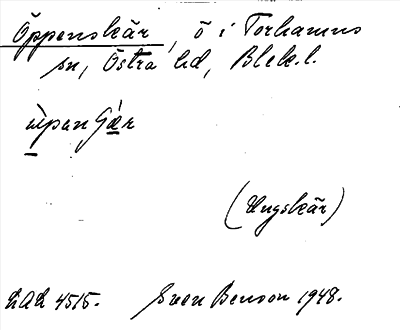 Öppenskär, ö i Torhamns
sn, Östra hd, Blek.l.
(Ungskär)
LAL 4515. Sven Benson 1948.